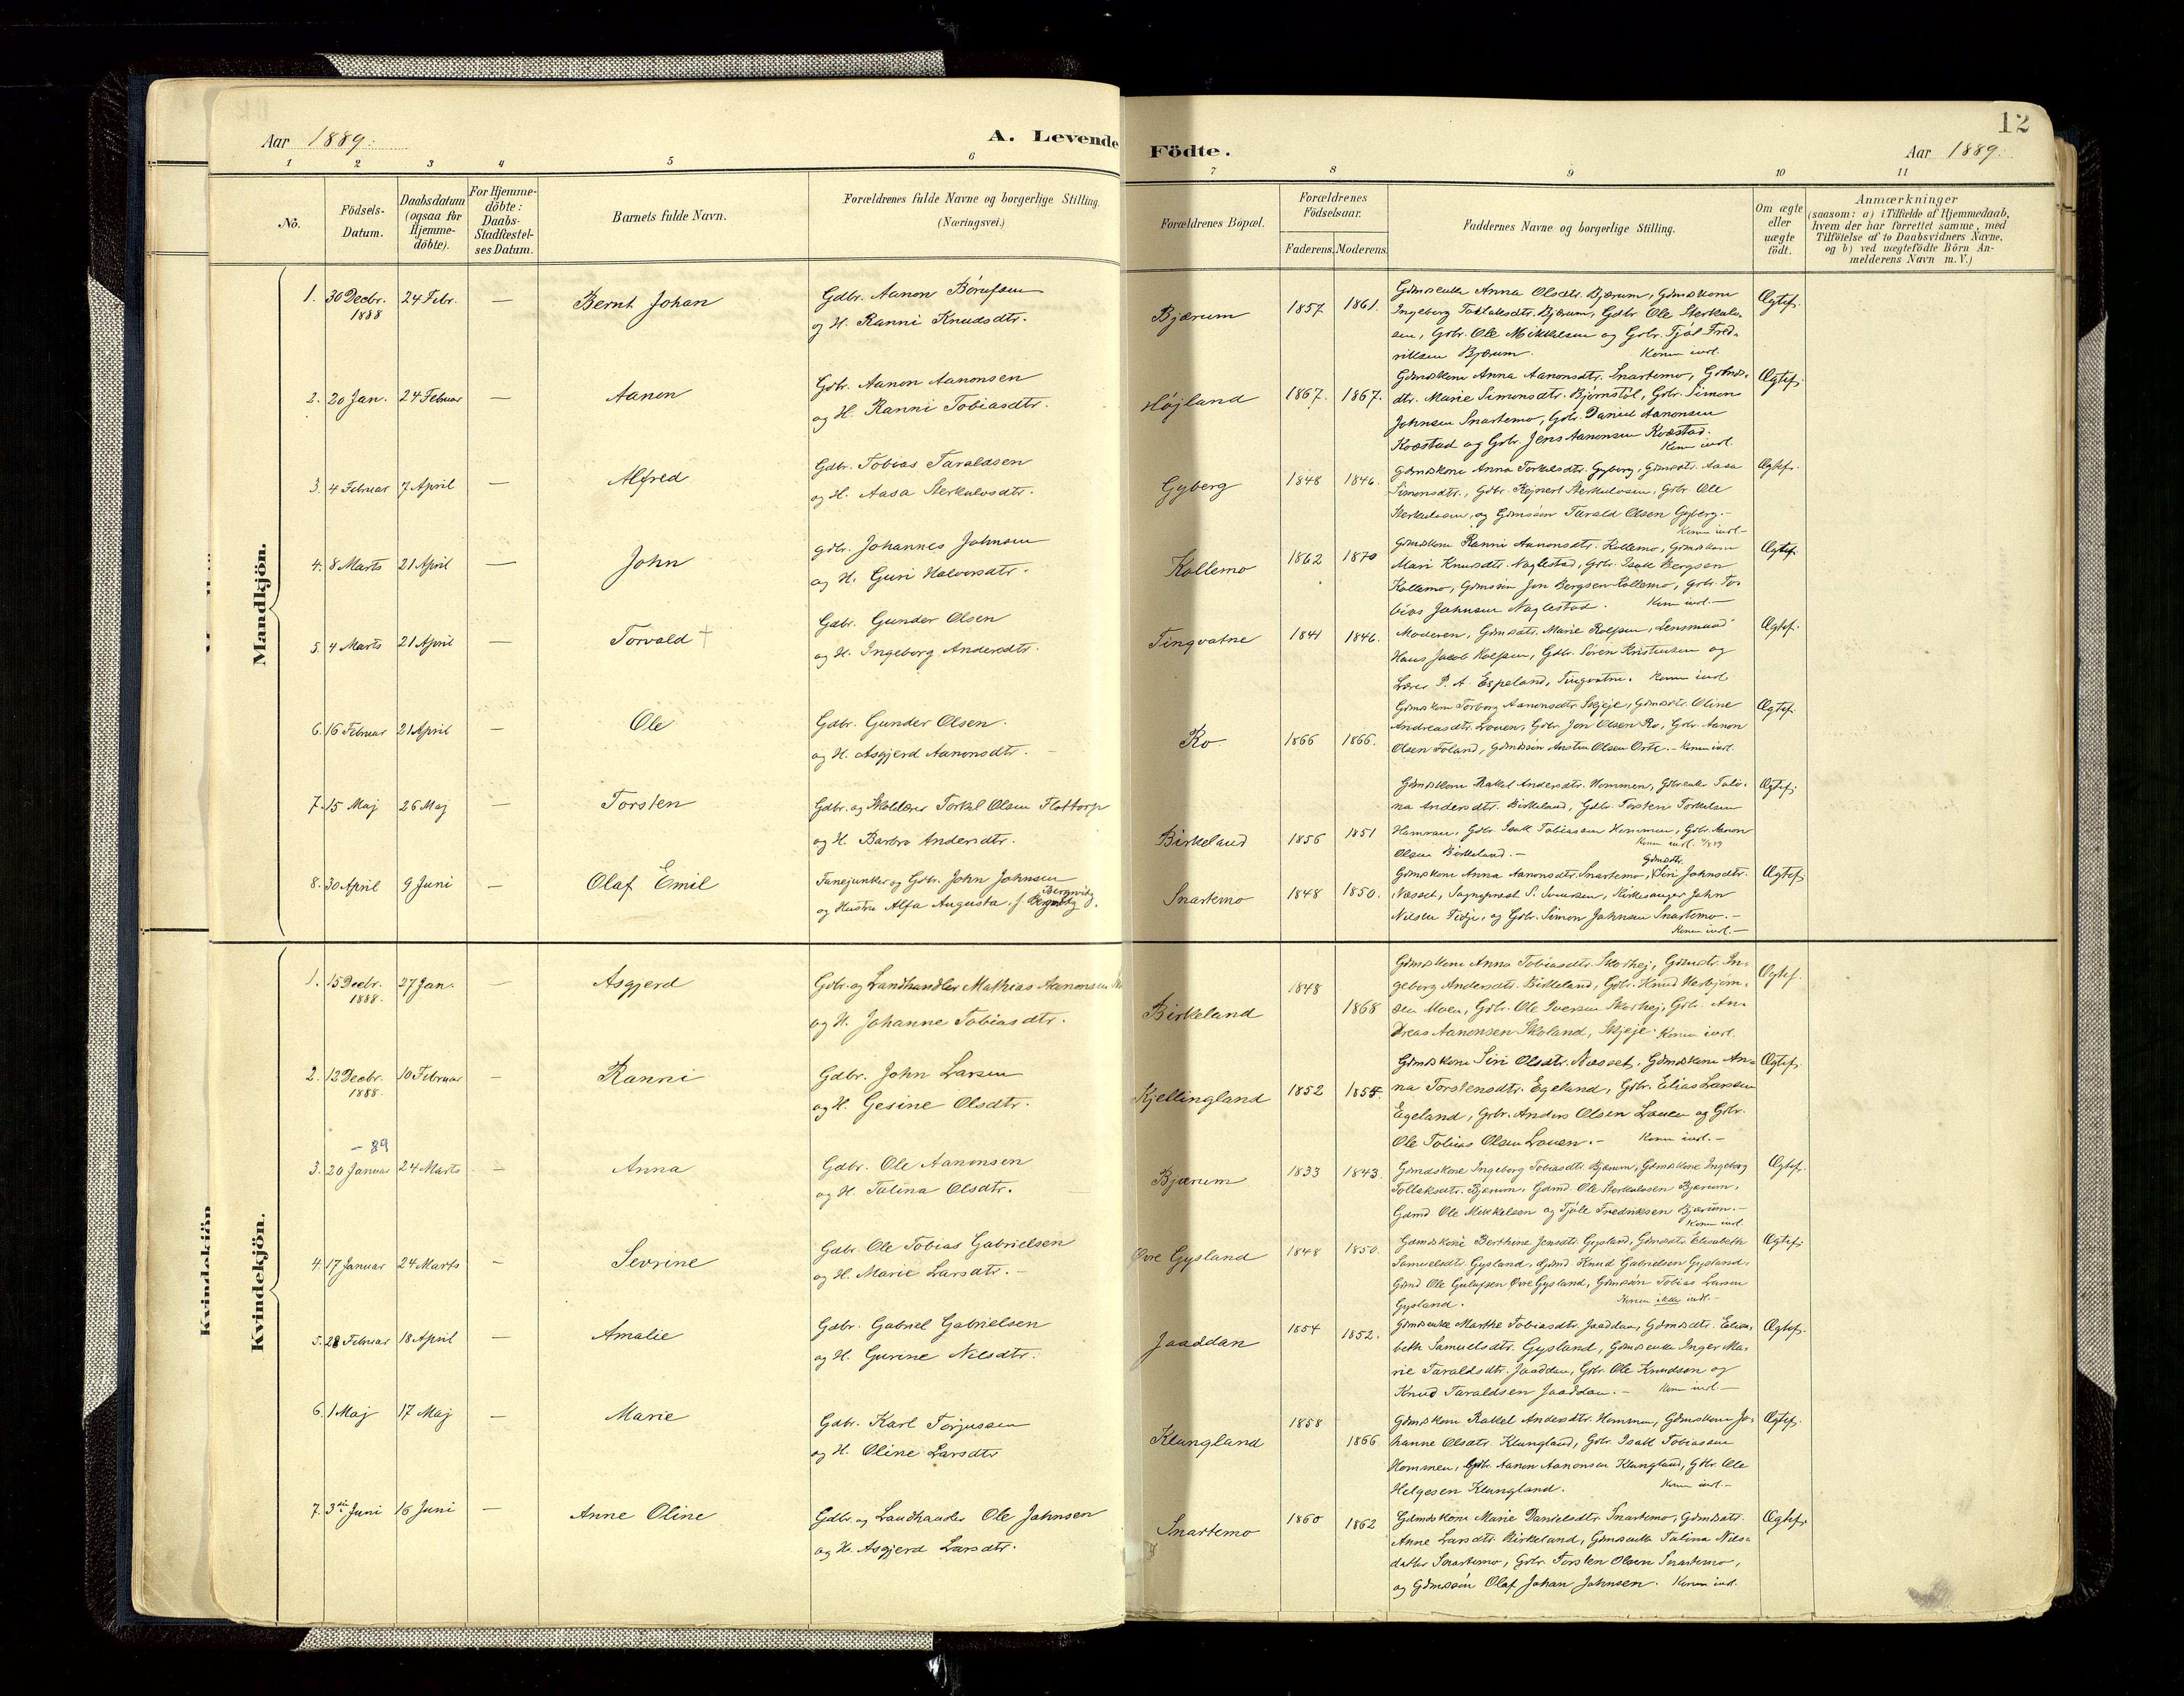 12
Aar 1889.
A. Levende Födte.
Aar 1889.
1 2 3 4 5 6 7 8 9 10 11
No.
Födsels-Datum.
Daabsdatum (ogsaa for Hjemme-döbte).
For Hjemme-döbte: Daabs-Stadfæstel-ses Datum.
Barnets fulde Navn.
Forældrenes fulde Navne og borgerlige Stilling. (Næringsvei.)
Forældrenes Bopæl.
Forældrenes Födselsaar.
Faderens. Moderens.
Faddernes Navne og borgerlige Stilling.
Om ægte eller uægte födt.
Anmærkninger
(saasom: a) i Tilfælde af Hjemmedaab,
hvem der har forrettet samme, med
Tilföielse af to Daabsvidners Navne,
og b) ved uægtefödte Börn An-
melderens Navn m. V.)
Mandkjön.
1. 30 Decbr. 1888 24 Febr. — Bernt Johan
Gdbr. Aanon
og H. Ranni Knudsdtr.
Bjærum 1857 1861.
Gdmdenke Anna Olsdtr. Bjærum, Gdmdskone
Ingeborg Tollaksdtr. Bjærum, Gdbr Ole Sterkuls-
sen, Gdbr. Ole Mikkelsen og Gdbr. Tjøl Fred-
riksen Bjærum. Konen indl.
Ægtef.
2. 20 Jan. 24 Februar — Aanon
Gdbr. Aanon Aanonsen
og H. Ranni Tobiasdtr.
Højland 1867. 1867.
Gdmdskone Anna Aanonsdtr. Snartemo, Gdbrs.
dtr. Marie Simonsdtr. Bjørnstøl, Gdbr. Simon
Johnsen Snartemo, Gdbr. Daniel Aanonsen
Kvæstad og Gdbr. Jens Aanonsen Kvæstad.
Konen indl.
Ægtef.
3. 4 Februar 7 April — Alfred
Gdbr. Tobias Taraldsen
og H. Aasa Sterkulsdtr.
Gyberg 1848 1846.
Gdmdskone Anna Torkelsdtr. Gyberg, Gdmdsdtr. Aasa
Simonsdtr., Gdbr. Rejnert Sterkulssen, Gdbr Ole
Sterkulssen, og Gdmdssøn Tarald Olsen Gyberg.—
Konen indl.—
Ægtef.
4. 8 Marts 21 April — John
Gdbr. Johannes Johnsen
og H. Guri Halvorsdtr.
Kollemo 1862 1870
Gdmdskone Ranni Aanonsdtr. Kollemo, Gdmdskone
Mari Knudsdtr. Naglestad, Gdbr. Isak Bergsen
Kollemo, Gdmdssøn Jon Bergsen Kollemo, Gdbr. To-
bias Johnsen Naglestad. Konen indl.—
Ægtef.
5. 4 Marts 21 April — Torvald †
Gdbr. Gunder Olsen
og H. Ingeborg Andersdtr.
Tingvatne 1841 1846.
Moderen, Gdmdsdtr. Marie Rolfsen, Lensmand
Hans Jacob Rolfsen, Gdbr. Sören Kristensen og
Lærer P. A. Espeland, Tingvatne. Konen indl
Ægtef.
6. 16 Februar 21 April — Ole
Gdbr. Gunder Olsen.
og H. Asgjerd Aanonsdtr.
Ro 1866 1866.
Gdmdskone Torborg Aanonsdtr. Skjeje, Gdmdsdtr. Oline
Andreasdtr. Louen, Gdbr. Jon Olsen Ro, Gdbr. Aanon
Olsen Foland, Gdmdssøn Olsen Konen indl.
Ægtef.
7. 15 Maj 26 Maj — Torsten
Gdbr. og Skolelærer Torkel Olsen Flottorp
og H. Barbro Andersdtr.
Birkeland 1856 1851
Gdmdskone Rakel Andersdtr. Hommen, Gdbrenke Tali-
na Andersdtr. Birkeland, Gdbr. Torsten Torkelsen
Hamran, Gdbr. Isak Tobiassen Hommen, Gdbr. Aanon
Olsen Birkeland.— Konen indl.
Ægtef.
8. 30 April 9 Juni — Olaf Emil
Fanejunker og Gdbr. John Johnsen
og Hustru Alfa Augusta, f. Bergwitz.
Snartemo 1848 1850.
Gdmdskone Anna Aanonsdtr. Snartemo, Gdmdsdtr. Siri Johnsdtr.
Næsset, Sogneprest S. Svensen, Kirkesanger John
Nilsen Tidje, og Gdbr. Simon Johnsen Snartemo.—
Konen indl.—
Ægtef.
Kvindekjön.
1. 15 Decbr. 1888. 27 Jan. — Asgjerd
Gdbr. og Landhandler Mathias Aanonsen
og H. Johanne Tobiasdtr.
Birkeland 1848 1868
Gdmdskone Anna Tobiasdtr. Skorhej, Gdmdsdtr. In-
geborg Andersdtr. Birkeland, Gdbr. Knud Herbjørn-
sen Moen, Gdbr. Ole Iversen Skorhej, Gdbr. An-
dreas Aanonsen Skoland, Skjeje. Konen indl.
Ægtef.
2. 12 Decbr. 1888. 10 Februar — Ranni
Gdbr. John Larsen
og H. Gesine Olsdtr.
Kjellingland 1852 1855.
Gdmdskone Siri Olsdtr. Næsset, Gdmdskone An-
na Torstensdtr. Egeland, Gdbr. Elias Larsen
Egeland, Gdbr. Anders Olsen Louen og Gdbr.
Ole Tobias Olsen Louen.— Konen indl.—
Ægtef.
— 89
3. 20 Januar 24 Marts — Anna
Gdbr. Ole Aanonsen
og H. Talina Olsdtr.
Bjærum 1833 1843.
Gdmdskone Ingeborg Tobiasdtr. Bjærum, Gdmdskone Ingeborg
Tollaksdtr. Bjærum, Gdmd Ole Sterkulssen Bjærum,
Gdmd Ole Mikkelsen og Tjøle Fredriksen Bjærum.—
Konen indl
Ægtef.
4. 17 Januar 24 Marts — Sevrine
Gdbr. Ole Tobias Gabrielsen
og H. Marie Larsdtr.—
Øvre Gysland 1848 1850.
Gdmdskone Berthine Jensdtr. Gysland, Gdmdsdtr. Elisabeth
Samuelsdtr Gysland, Gdmd Knud Gabrielsen Gysland,
Gdmd Ole Gulufsen Øvre Gysland, Gdmdssøn Tobias Larsen
Gysland. Konen ikke indl.—
Ægtef.
5. 28 Februar 18 April — Amalie
Gdbr. Gabriel Gabrielsen
og H. Gurine Nilsdtr.
Jaaddan 1854 1852.
Gdmdsenke Marthe Tobiasdtr. Jaaddan, Gdmdsdtr. Elisa-
beth Samuelsdtr. Gysland, Gdmdsenke Inger Ma-
rie Taraldsdtr. Jaaddan, Gdbr. Ole Knudsen og
Knud Taraldsen Jaaddan.— Konen indl.—
Ægtef.
6. 1 Maj 17 Maj — Marie
Gdbr. Karl Torjussen
og H. Oline Larsdtr
Klungland 1858 1866
Gdmdskone Rakel Andersdtr. Hommen, Gdmdskone Jo-
hanne Olsdtr. Klungland, Gdbr. Isak Tobiassen
Hommen, Gdbr. Aanon Aanonsen Klungland, Gdbr. Ole
Helgesen Klungland. Konen indl.—
Ægtef.
7. 3die Juni 16 Juni — Anne Oline
Gdbr. og Landhandler Ole Johnsen
og H. Asgjerd Larsdtr.
Snartemo 1860 1862
Gdmdskone Marie Danielsdtr Snartemo, Gdmdsdtr.
Anne Larsdtr Birkeland, Gdmdsenke Talina Nils-
datter Snartemo, Gdbr. Torsten Olsen Snartemo,
og Gdmdssøn Olaf Johan Johnsen. Konen indl.
Ægtef.
Kvindekjön